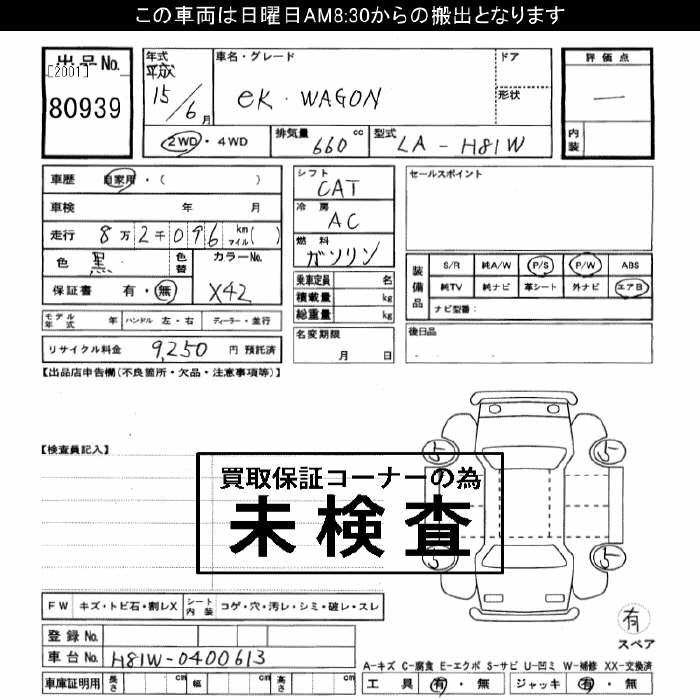 この車両は日曜日AM8:30からの搬出となります
出品No.
[2001]
80939
年式
平成
15/6月
車名・グレード
eK・WAGON
ドア
形状
2WD・4WD
排気量 660 cc
型式 LA-H81W
評価点
—
内装
車歴 自家用・( )
車検 年 月
走行 8万2千096 km マイル( )
色 黒
色替
カラーNo.
X42
保証書 有・無
モデル年式 年 ハンドル 左・右 ディーラー・並行
リサイクル料金 9,250 円 預託済
シフト
CAT
冷房
AC
燃料
ガソリン
乗車定員 名
積載量 kg
総重量 kg
名変期限
月 日
セールスポイント
装備品
S/R 純A/W P/S P/W ABS
純TV 純ナビ 革シート 外ナビ エアB
ナビ型番:
後日品
【出品店申告欄(不良箇所・欠品・注意事項等)】
【検査員記入】
買取保証コーナーの為
未検査
5 5
5 5
有
スペア
FW キズ・トビ石・割レX シート内装 コゲ・穴・汚レ・シミ・破レ・スレ
登録No.
車台No. H81W-0400613
車庫証明用 長さ cm 幅 cm 高さ cm
A-キズ C-腐食 E-エクボ S-サビ U-凹ミ W-補修 XX-交換済
工具 有・無 ジャッキ 有・無